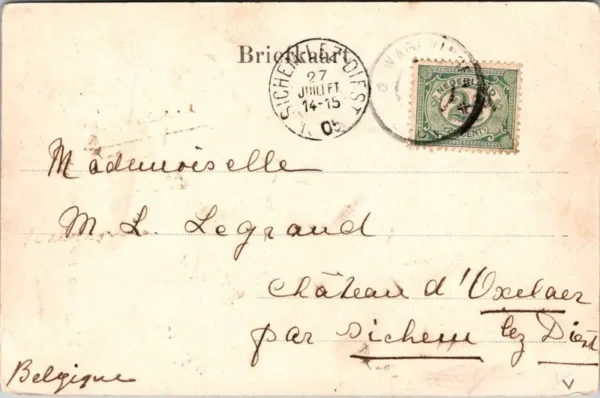 Briefkaart
SICHEM-LEZ-DIEST
27
JUILLET
14-15
05
NEDERLAND
2½
CENT
Mademoiselle
M. L. Legrand
Château d'Oxelaer
par Sichem lez Diest
Belgique